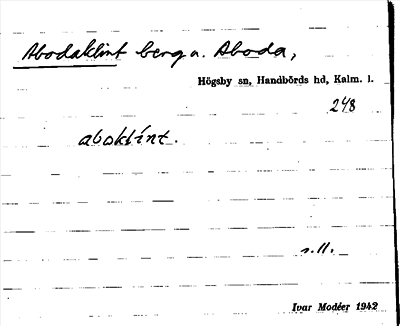 Abodaklint berg v. Aboda,
Högsby sn, Handbörds hd, Kalm. l.
248
aboklínt.
s. 11.
Ivar Modéer 1942